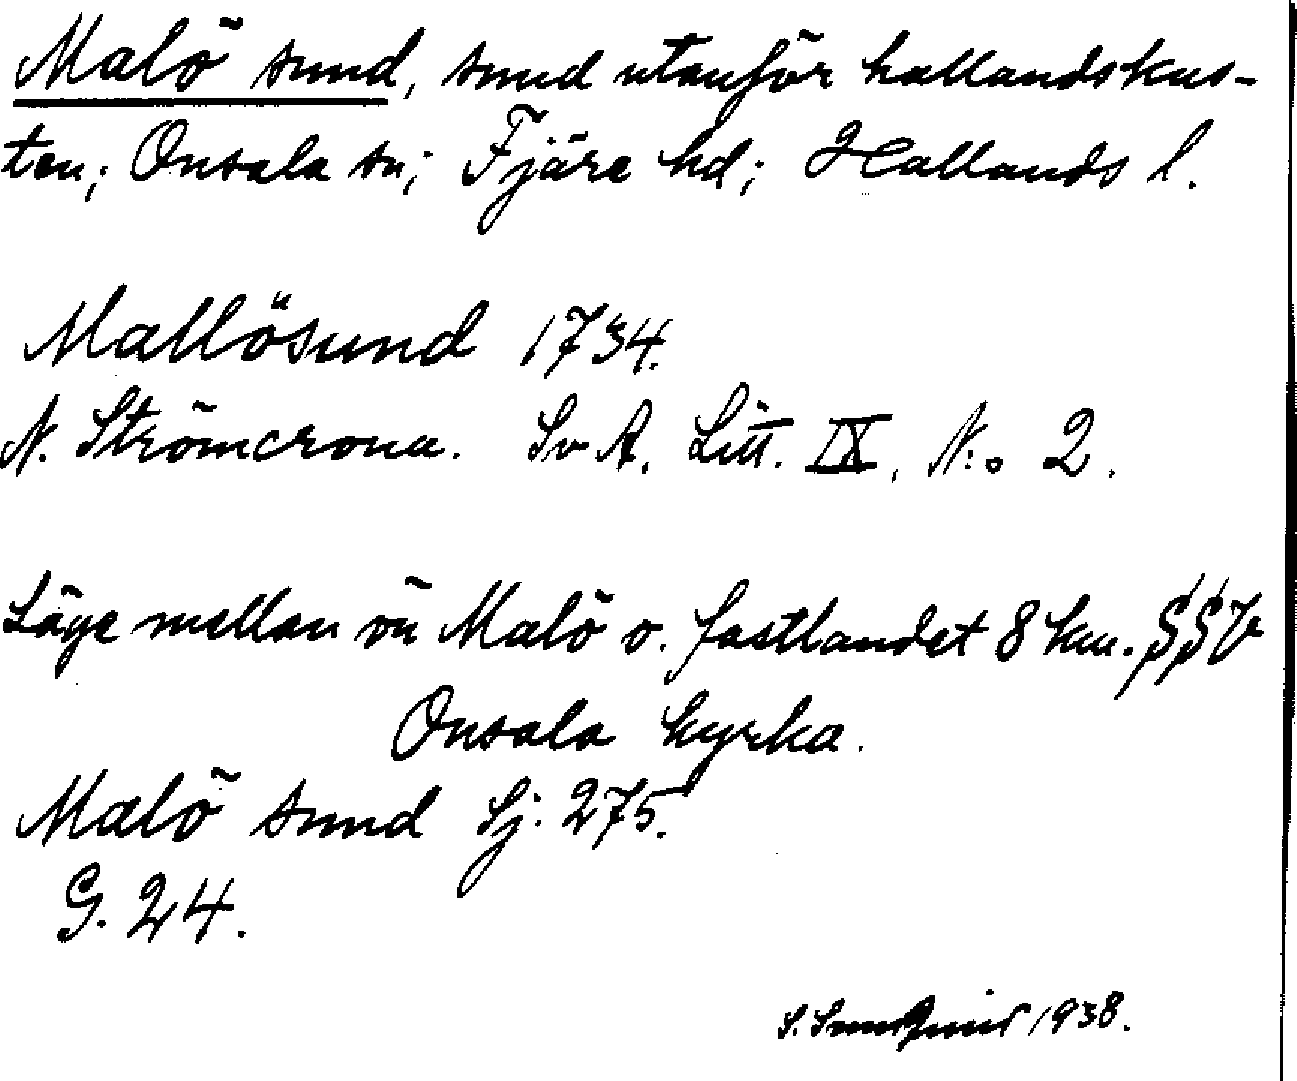 Malö sund, sund utanför hallandskus-
ten; Onsala sn; Fjäre hd; Hallands l.
Mallösund 1734.
N. Strömcrona. Sv A. Litt. IX, N:o 2.
Läge mellan ön Malö o. fastlandet 8 km. SSV
Onsala kyrka.
Malö sund Sj. 275.
G. 24.
S. 1938.